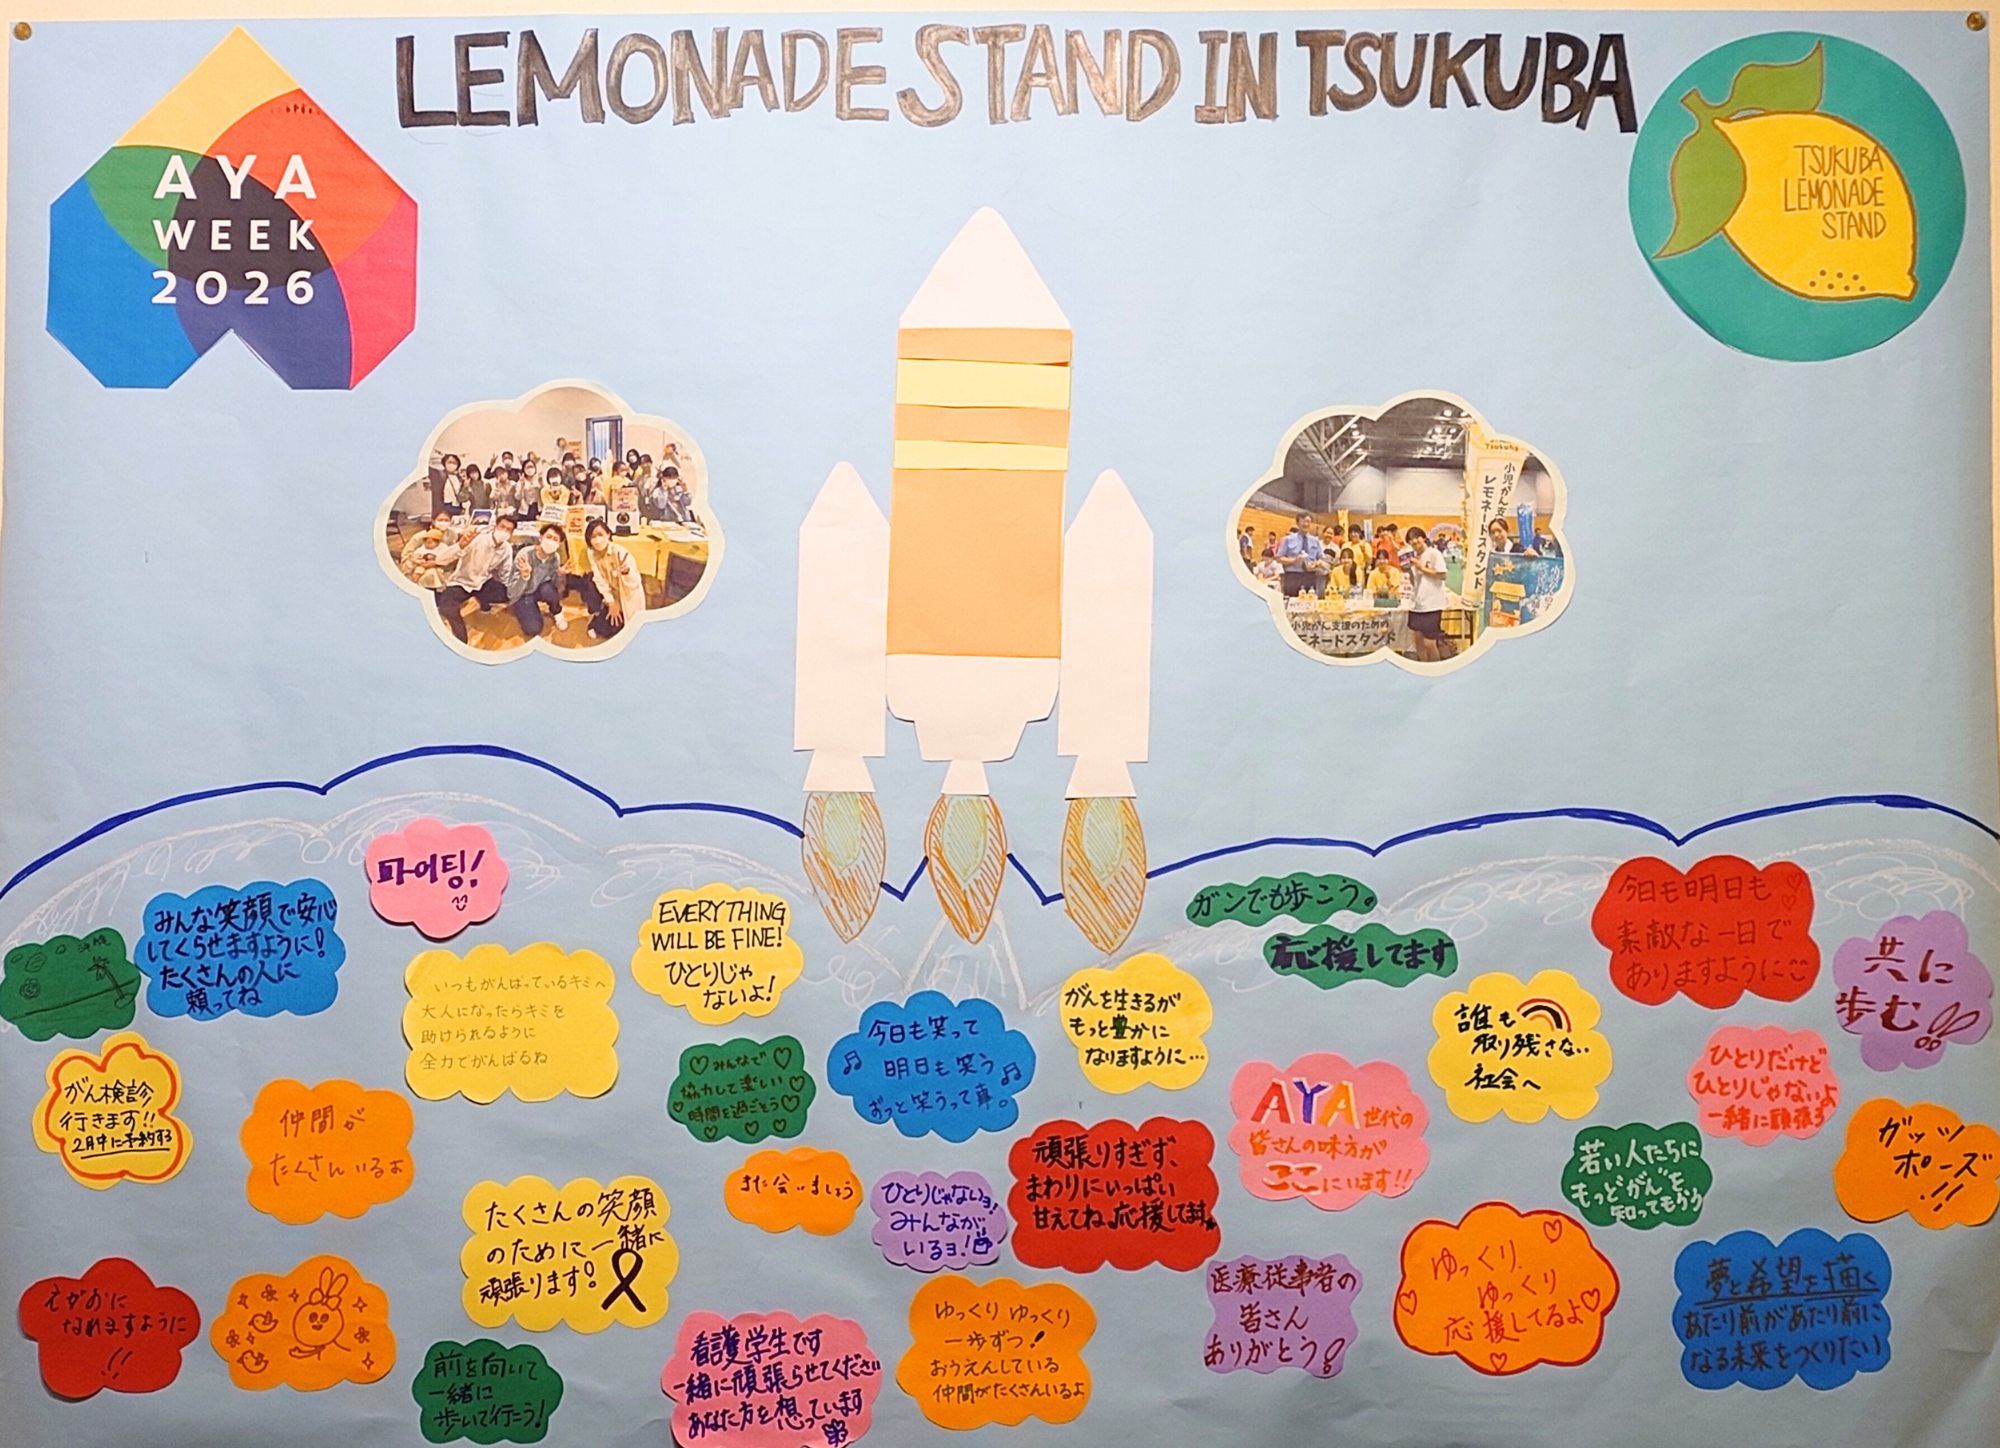 LEMONADE STAND IN TSUKUBA
AYA
WEEK
2026
TSUKUBA
LEMONADE
STAND
Tsukuba
小児がん支
レモネードスタンド
小児がん支援のための
モネードスタンド
파이팅!
みんな笑顔で安心
してくらせますように!
たくさんの人に
頼ってね
沖縄
いつもがんばっているキミへ
大人になったらキミを
助けられるように
全力でがんばるね
EVERYTHING
WILL BE FINE!
ひとりじゃ
ないよ!
ガンでも歩こう。
応援してます
今日も明日も
素敵な一日で
ありますように
共に
歩む
がんを生きるが
もっと豊かに
なりますように…
誰も
取り残さない
社会へ
今日も笑って
明日も笑う
ずっと笑うって事。
みんなで
協力して楽しい
時間を過ごそう
がん検診
行きます!!
2月中に予約する
仲間が
たくさんいるよ
AYA世代の
皆さんの味方が
ここにいます!!
ひとりだけど
ひとりじゃないよ
一緒に頑張ろ
ガッツ
ポーズ
!!
若い人たちに
もっと"がん"を
知ってもらう
頑張りすぎず、
まわりにいっぱい
甘えてね。応援してます
また会いましょう
ひとりじゃないヨ!
みんなが
いるヨ!
たくさんの笑顔
のために一緒に
頑張ります!
えがおに
なれますように
!!
医療従事者の
皆さん
ありがとう!
ゆっくり、
ゆっくり
応援してるよ
夢と希望を描く
あたり前があたり前に
なる未来をつくりたい
前を向いて
一緒に
歩いて行こう!
看護学生です
一緒に頑張らせてください
あなた方を想っています
ゆっくり ゆっくり
一歩ずつ!
おうえんしている
仲間がたくさんいるよ